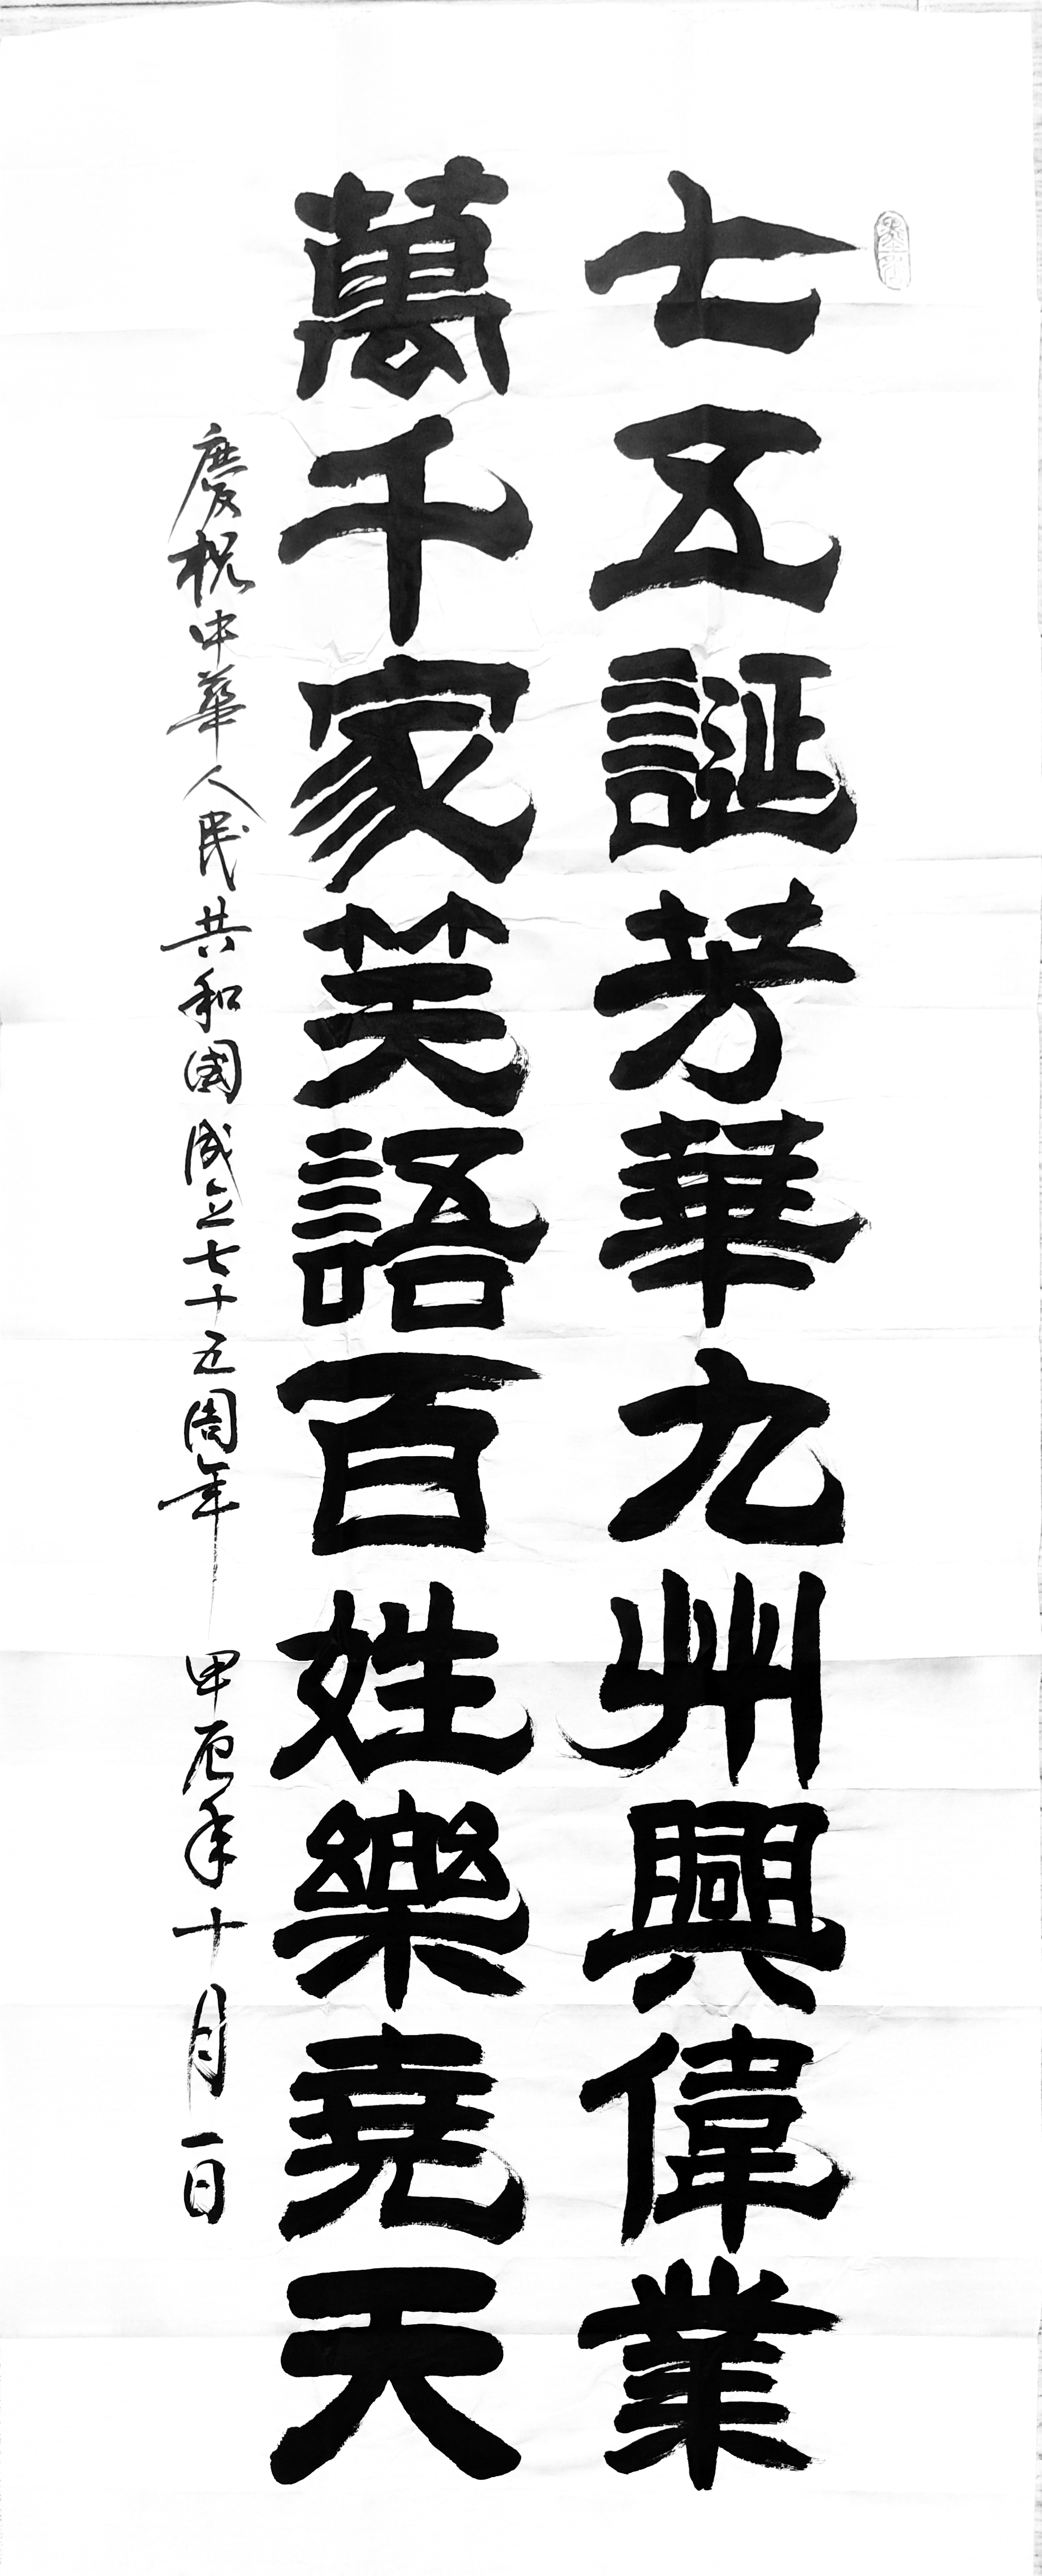 七五誕芳華九州興偉業
萬千家笑語百姓樂堯天
慶祝中華人民共和國成立七十五周年 甲辰年十月一日